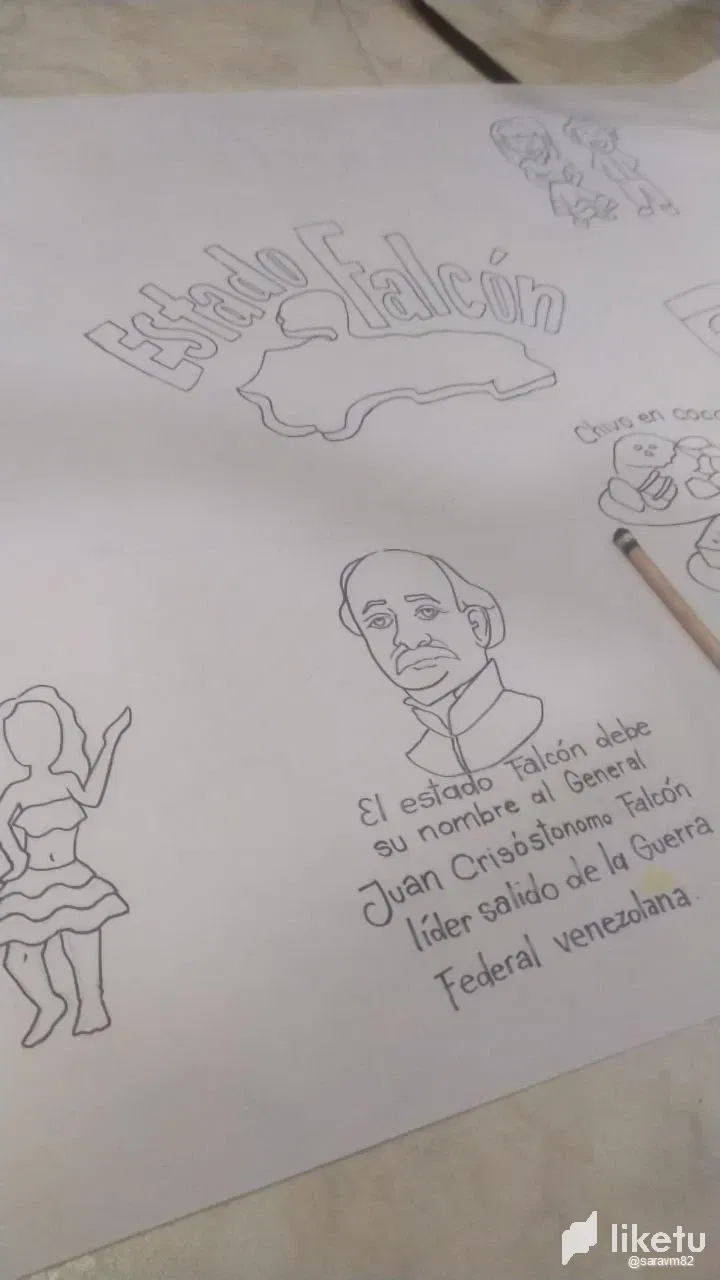 Estado Falcón
Chivo en coco
El estado Falcón debe
su nombre al General
Juan Crisóstonomo Falcón
líder salido de la Guerra
Federal venezolana.
liketu
@saravm82